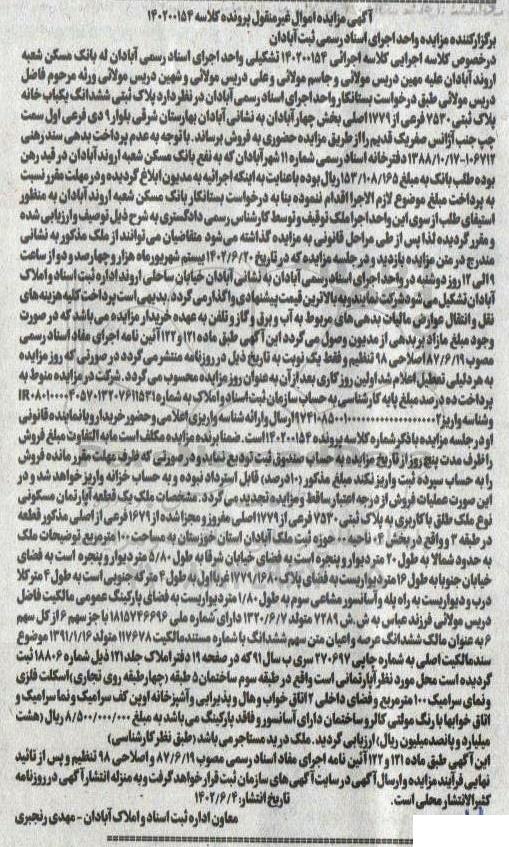 آگهی مزایده اموال غیرمنقول پرونده کلاسه ۱۴۰۲۰۰۱۵۴
برگزارکننده مزایده واحد اجرای اسناد رسمی ثبت آبادان
درخصوص کلاسه اجرایی کلاسه اجرائی ۱۴۰۲۰۰۱۵۴ تشکیلی واحد اجرای اسناد رسمی آبادان له بانک مسکن شعبه
اروند آبادان علیه مهین دریس مولائی و جاسم مولائی و علی دریس مولائی و شهین دریس مولائی ورثه مرحوم فاضل
دریس مولائی طبق درخواست بستانکار واحد اجرای اسناد رسمی آبادان در نظر دارد پلاک ثبتی ششدانگ یکباب خانه
پلاک ثبتی ۷۵۳۰ فرعی از ۱۷۷۹ اصلی بخش چهار آبادان به نشانی آبادان بهارستان شرقی بلوار ۹ دی فرعی اول سمت
چپ جنب آژانس صفر یک قدیم را از طریق مزایده حضوری به فروش برساند. با توجه به عدم پرداخت بدهی سند رهنی
۱۰۶۷۱۲-۱۳۸۸/۱۰/۱۷ دفترخانه اسناد رسمی شماره ۱۱ شهر آبادان که به نفع بانک مسکن شعبه اروند آبادان در قید رهن
بوده طلب بانک به مبلغ ۱۵۳/۱۰۸/۱۶۵ ریال بوده با عنایت به اینکه اجرائیه به مدیون ابلاغ گردیده و در مهلت مقرر نسبت
به پرداخت مبلغ موضوع لازم الاجرا اقدام ننموده بنا به درخواست بستانکار بانک مسکن شعبه اروند آبادان به منظور
استیفای طلب از سوی این واحد اجرا ملک توقیف و توسط کارشناس رسمی دادگستری به شرح ذیل توصیف و ارزیابی شده
و مقرر گردیده لذا پس از طی مراحل قانونی به مزایده گذاشته می شود متقاضیان می توانند از ملک مذکور به نشانی
مندرج در متن مزایده بازدید و در جلسه مزایده که در تاریخ ۱۴۰۲/۶/۲۰ بیستم شهریور ماه هزار و چهارصد و دو از ساعت
۹ الی ۱۲ روز دوشنبه در واحد اجرای اسناد رسمی آبادان به نشانی آبادان خیابان ساحلی اروند اداره ثبت اسناد و املاک
آبادان تشکیل می شود شرکت نمایند و به بالاترین قیمت پیشنهادی واگذار می گردد. بدیهی است پرداخت کلیه هزینه های
نقل و انتقال عوارض مالیات بدهی های مربوط به آب و برق و گاز و تلفن به عهده خریدار مزایده می باشد که در صورت
وجود مبلغ مازاد بر بدهی از مدیون وصول می گردد این آگهی طبق ماده ۱۲۱ و ۱۲۲ آئین نامه اجرای مفاد اسناد رسمی
مصوب ۸۷/۶/۱۹ اصلاحی ۹۸ تنظیم و فقط یک نوبت به تاریخ ذیل در روزنامه منتشر می گردد در صورتی که روز مزایده
به هر دلیلی تعطیل اعلام شد اولین روز کاری بعد از آن به عنوان روز مزایده محسوب می گردد. شرکت در مزایده منوط به
پرداخت ده درصد مبلغ پایه کارشناسی به حساب سازمان ثبت اسناد و املاک به شماره
و شناسه واریز ارسال و ارائه شناسه واریزی اعلامی و حضور خریدار و یا نماینده قانونی
او در جلسه مزایده با ذکر شماره کلاسه پرونده ۱۴۰۲۰۰۱۵۴ است. ضمنا برنده مزایده مکلف است مابه التفاوت مبلغ فروش
را ظرف مدت پنج روز از تاریخ مزایده به حساب صندوق ثبت تودیع نماید و در صورتی که ظرف مهلت مقرر مانده فروش
را به حساب سپرده ثبت واریز نکند مبلغ مذکور (۱۰درصد) قابل استرداد نبوده و به حساب خزانه واریز خواهد شد و در
این صورت عملیات فروش از درجه اعتبار ساقط و مزایده تجدید می گردد. مشخصات ملک یک قطعه آپارتمان مسکونی
نوع ملک طلق با کاربری به پلاک ثبتی ۷۵۳۰ فرعی از ۱۷۷۹ اصلی مفروز و مجزا شده از ۱۶۷۹ فرعی از اصلی مذکور قطعه
در طبقه ۳ و واقع در بخش ۰۴ ناحیه ۰۰ حوزه ثبت ملک آبادان استان خوزستان به مساحت ۱۰۰ مترمربع توضیحات ملک
به حدود شمالا به طول ۲۰ متر دیوار و پنجره است به فضای خیابان شرقا به طول ۵/۸۰ متر دیوار و پنجره است به فضای
خیابان جنوبا به طول ۱۶ متر دیواریست به فضای پلاک ۱۷۷۹/۱۶۸۰ غربا اول به طول ۴ متر که جنوبی است به طول ۴ متر کلا
درب و دیواریست به راه پله و آسانسور مشاعی سوم به طول ۱/۸۰ متر دیواریست به فضای پارکینگ عمومی مالکیت فاضل
دریس مولائی فرزند عباس به ش.ش ۷۲۸۹ متولد ۱۳۲۰/۶/۷ دارای شماره ملی ۱۸۱۵۷۳۶۶۹۶ با جز سهم ۶ از کل سهم
۶ به عنوان مالک ششدانگ عرصه و اعیان متن سهم ششدانگ با شماره مستند مالکیت ۱۱۷۶۷۸ متولد ۱۳۹۱/۱/۱۶ موضوع
سند مالکیت اصلی به شماره چاپی ۲۷۰۶۹۷ سری ب سال ۹۱ که در صفحه ۱۹ دفتر املاک جلد ۱۲۱ ذیل شماره ۱۸۸۰۶ ثبت
گردیده است محل مورد نظر آپارتمانی است واقع در طبقه سوم ساختمان ۵ طبقه (چهار طبقه روی تجاری) اسکلت فلزی
و نمای سرامیک ۱۰۰ مترمربع و فضای داخلی ۲ اتاق خواب و هال و پذیرایی و آشپزخانه اوپن کف سرامیک و نما سرامیک و
اتاق خوابها با رنگ مولتی کالر و ساختمان دارای آسانسور و فاقد پارکینگ می باشد به مبلغ ۸/۵۰۰/۰۰۰/۰۰۰ ریال (هشت
میلیارد و پانصد میلیون ریال) ارزیابی گردید. ملک در ید مستاجر می باشد (طبق نظر کارشناسی)
این آگهی طبق ماده ۱۲۱ و ۱۲۲ آئین نامه اجرای مفاد اسناد رسمی مصوب ۸۷/۶/۱۹ و اصلاحی ۹۸ تنظیم و پس از تائید
نهایی فرآیند مزایده و ارسال آگهی در سایت آگهی های سازمان ثبت قرار خواهد گرفت و به منزله انتشار آگهی در روزنامه
کثیرالانتشار محلی است. تاریخ انتشار: ۱۴۰۲/۶/۴
معاون اداره ثبت اسناد و املاک آبادان - مهدی رنجبری